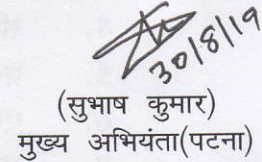 30/8/19
(सुभाष कुमार)
मुख्य अभियंता(पटना)